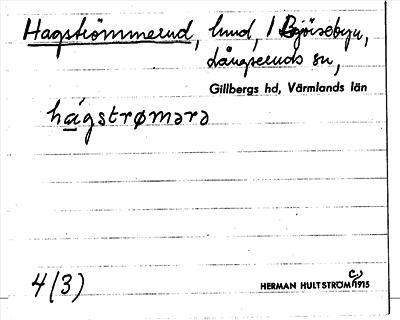 Hagströmmerud, hmd, / Björsebyn,
Långseruds sn,
Gillbergs hd, Värmlands län
hágstrømərə
4(3)
HERMAN HULTSTRÖM 1915